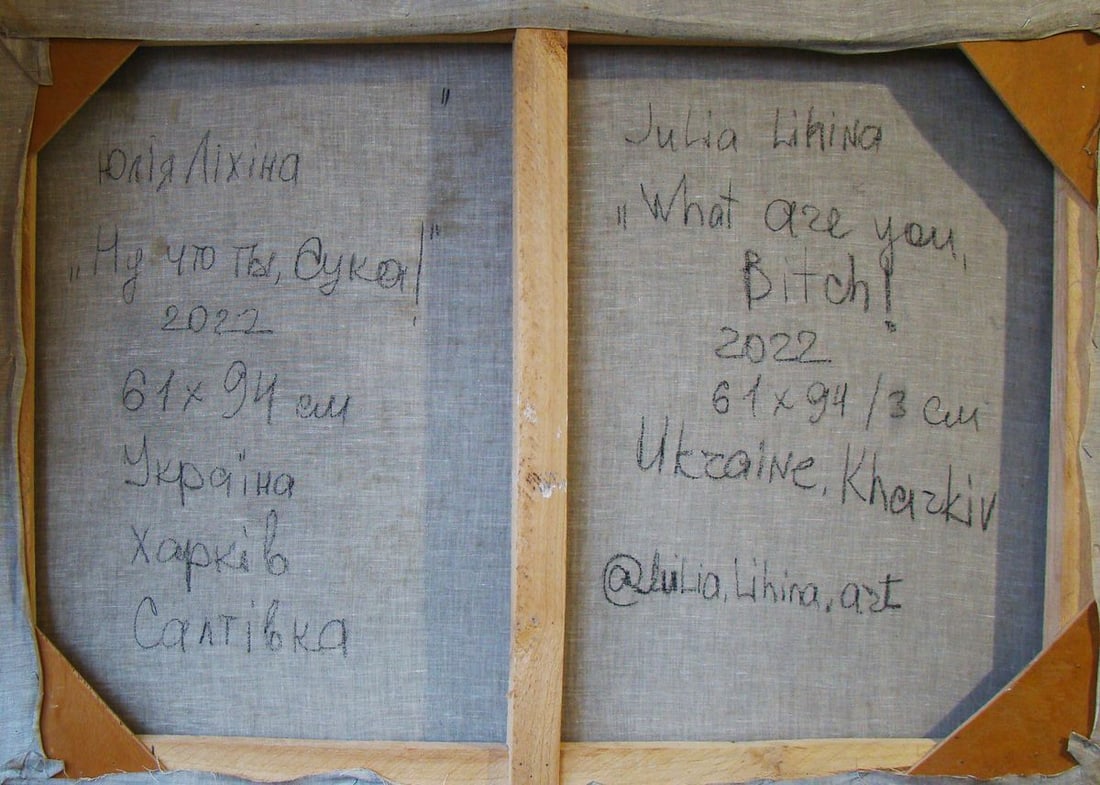 Юлія Ліхіна
„Ну что ты, Сука!"
2022
61 x 94 см
Україна
Харків
Салтівка
Julia Lihina
"What are you,
Bitch!
2022
61 x 94 /3 см
Ukraine, Kharkiv
@Julia.Lihina.art